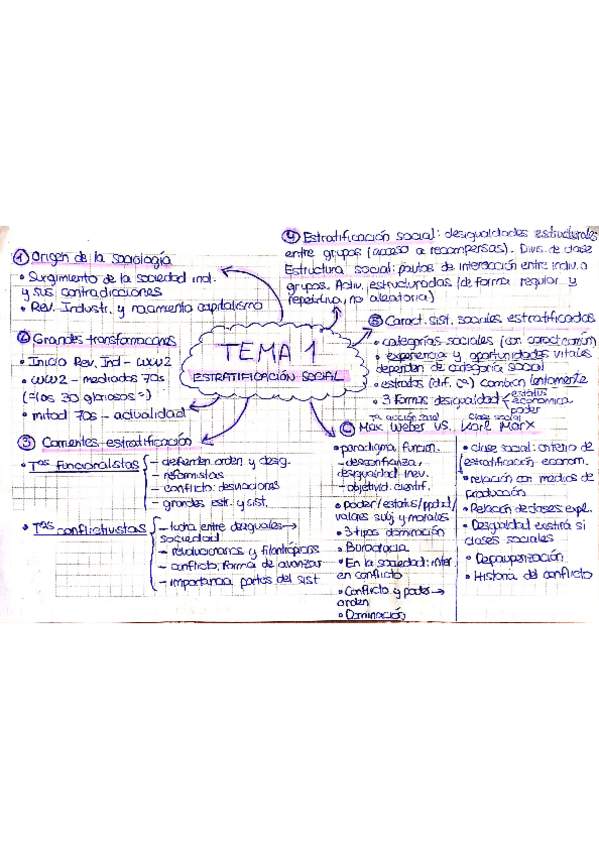 TEMA 1
ESTRATIFICACIÓN SOCIAL
① Origen de la sociología
• Surgimiento de la sociedad ind.
y sus contradicciones
• Rev. Industr. y nacimiento capitalismo
② Grandes transformaciones
• Inicio Rev. Ind - WW2
• WW2 - mediados 70s
(=los 30 gloriosos)
• mitad 70s - actualidad
③ Corrientes estratificación
• Tªs Funcionalistas
- defienden orden y desig.
- reformistas
- conflicto: desviaciones
- grandes estr. y sist.
• Tªs conflictivistas
- lucha entre desiguales →
sociedad
- revolucionarios y filantrópicos
- conflicto; forma de avanzar
- importancia partes del sist
④ Estratificación social: desigualdades estructurales
entre grupos (acceso a recompensas). Divis. de clase
Estructura social: pautas de interacción entre indiv. o
grupos. Activ. estructuradas (de forma regular y
repetitiva, no aleatoria)
⑤ Caract. sist. sociales estratificados
• categorías sociales (con caract común)
• experiencia y oportunidades vitales
dependen de categoría social
• estratos (dif. cª) cambian lentamente
• 3 formas desigualdad
estatus
económica
poder
⑥ Max Weber vs. Karl Marx
Tª acción social
Clase social
• paradigma funcion.
- desconfianza,
desigualdad inev.
- objetivid. científ.
• poder/estatus/
valores subj y morales
• 3 tipos dominación
• Burocracia
• En la sociedad: inter.
en conflicto
• Conflicto y poder →
orden
• Dominación
• clase social: criterio de
estratificación econom.
• relación con medios de
producción
• Relación de clases expl.
• Desigualdad existirá si
clases sociales
• Depauperización
• Historia del conflicto